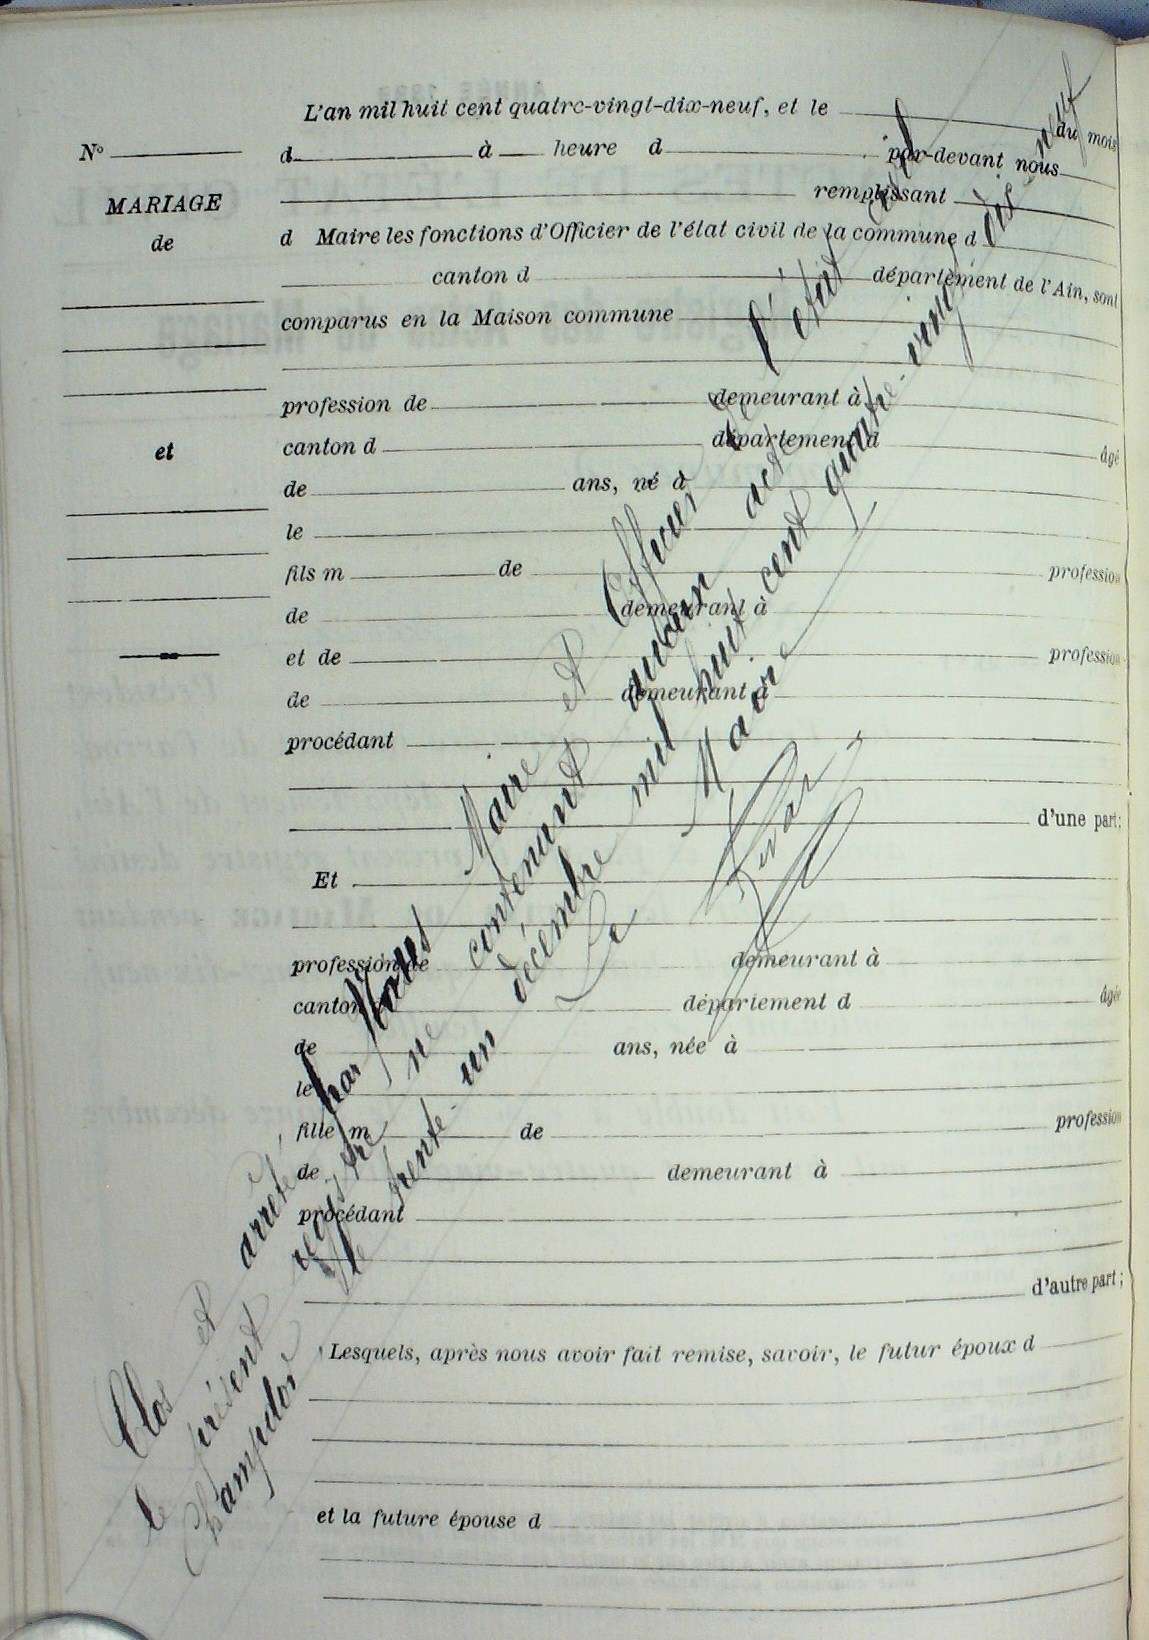 L'an mil huit cent quatre-vingt-dix-neuf, et le du mois
N° d à heure d par-devant nous
MARIAGE remplissant
de d Maire les fonctions d'Officier de l'état civil de la commune d
canton d département de l'Ain, sont
comparus en la Maison commune
profession de demeurant à
et canton d département d âgé
de ans, né d
le
fils m de profession
de demeurant à
et de profession
de demeurant à
procédant
d'une part;
Et
profession de demeurant à
canton département d âgée
de ans, née à
le
fille m de profession
de demeurant à
procédant
d'autre part;
Lesquels, après nous avoir fait remise, savoir, le futur époux d
et la future épouse d
Clos et arrêté par Nous Maire et Officier de l'état civil
le présent registre ne contenant aucun acte
Champdor le trente-un décembre mil huit cent quatre-vingt dix-neuf
Le Maire